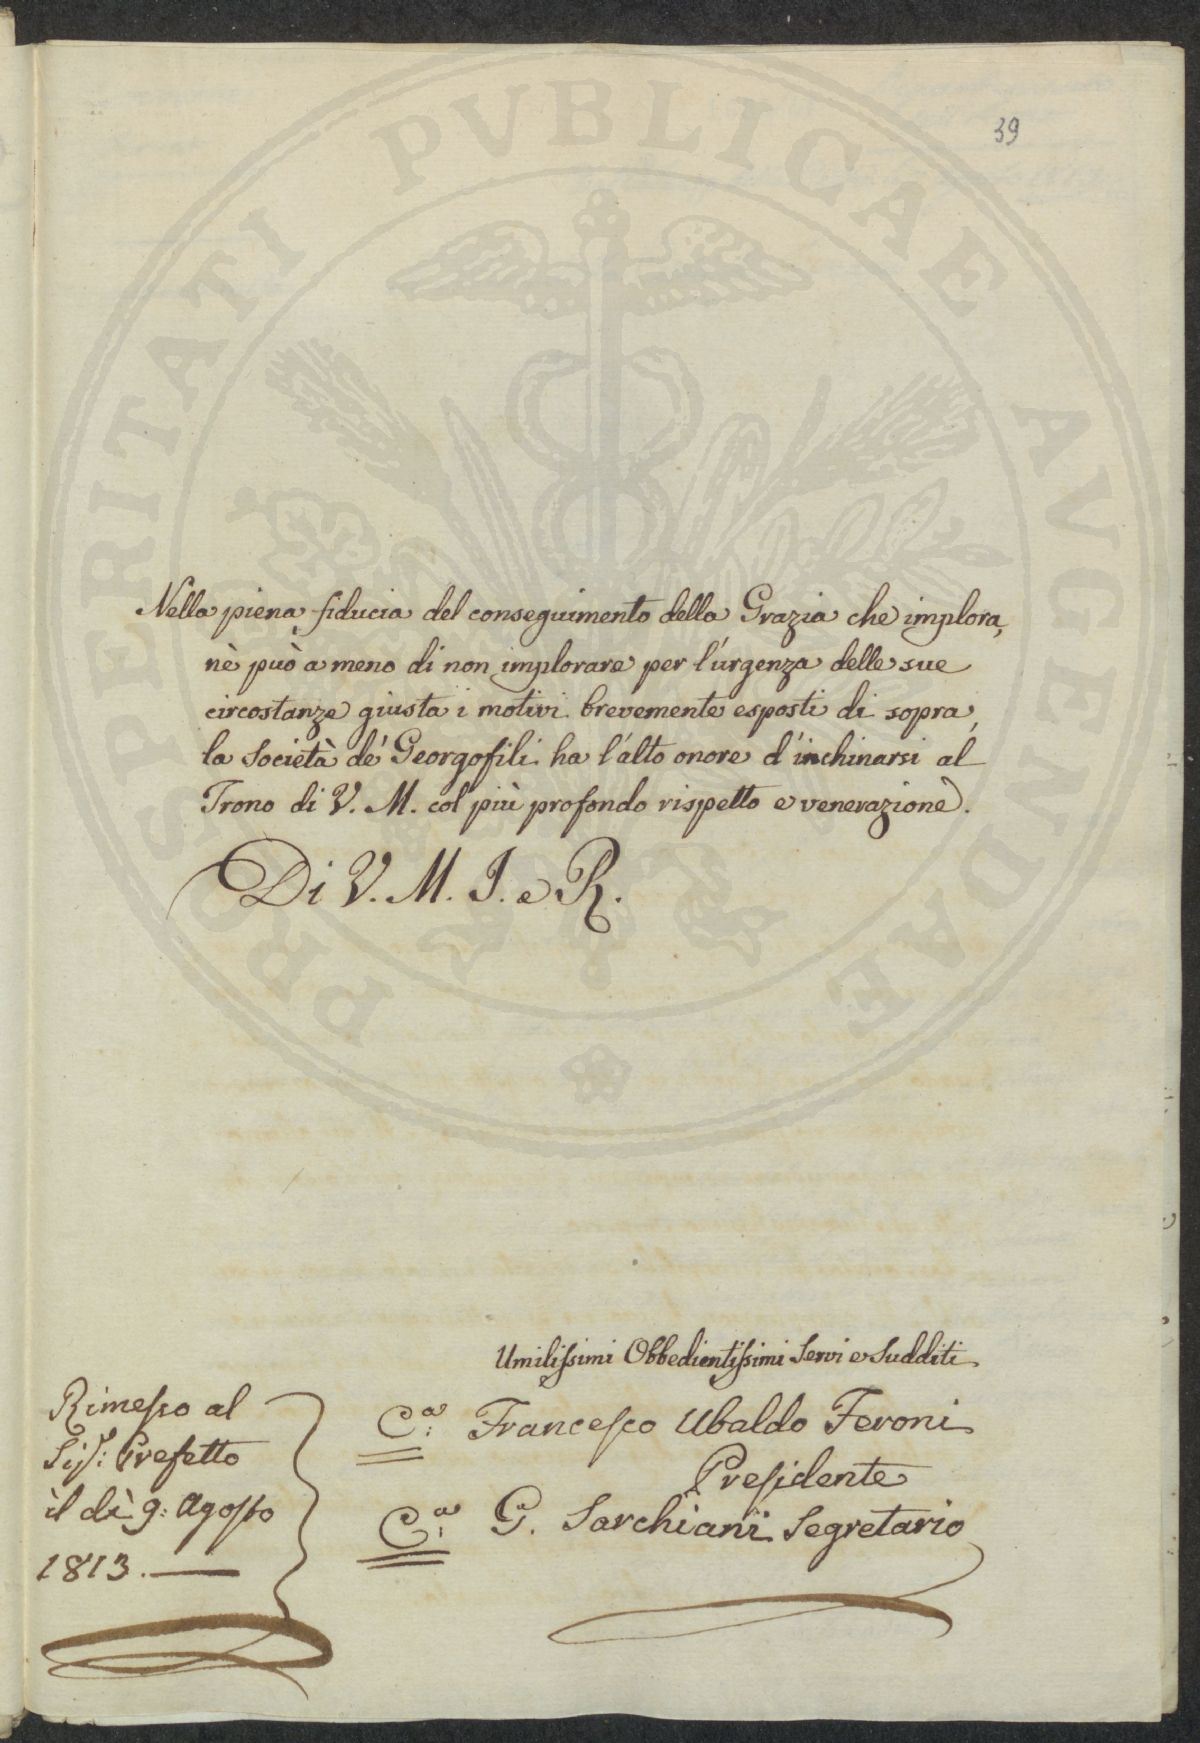 39
PROSPERITATI PVBLICAE AVGENDAE
Nella piena fiducia del conseguimento della Grazia che implora,
nè può a meno di non implorare per l'urgenza delle sue
circostanze giusta i motivi brevemente esposti di sopra,
la Società de' Georgofili ha l'alto onore d'inchinarsi al
Trono di V. M. col più profondo rispetto e venerazione.
Di V. M. I. e R.
Umilissimi Obbedientissimi Servi e Sudditi
C.a Francesco Ubaldo Feroni
Presidente
C.a G. Sarchiani Segretario
Rimesso al
Sig.r Prefetto
il dì 9: Agosto
1813.